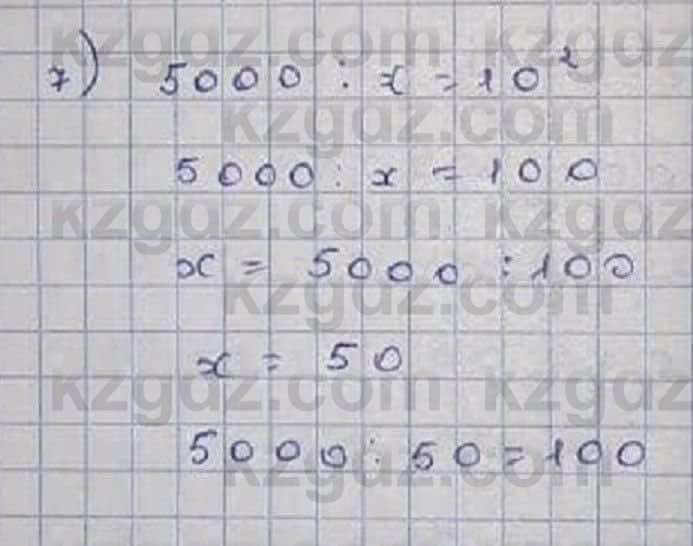 7) 5000 : x = 10²
5000 : x = 100
x = 5000 : 100
x = 50
5000 : 50 = 100
kzgdz.com
kzgdz.com
kzgdz.com
kzgdz.com
kzgdz.com
kzgdz.com